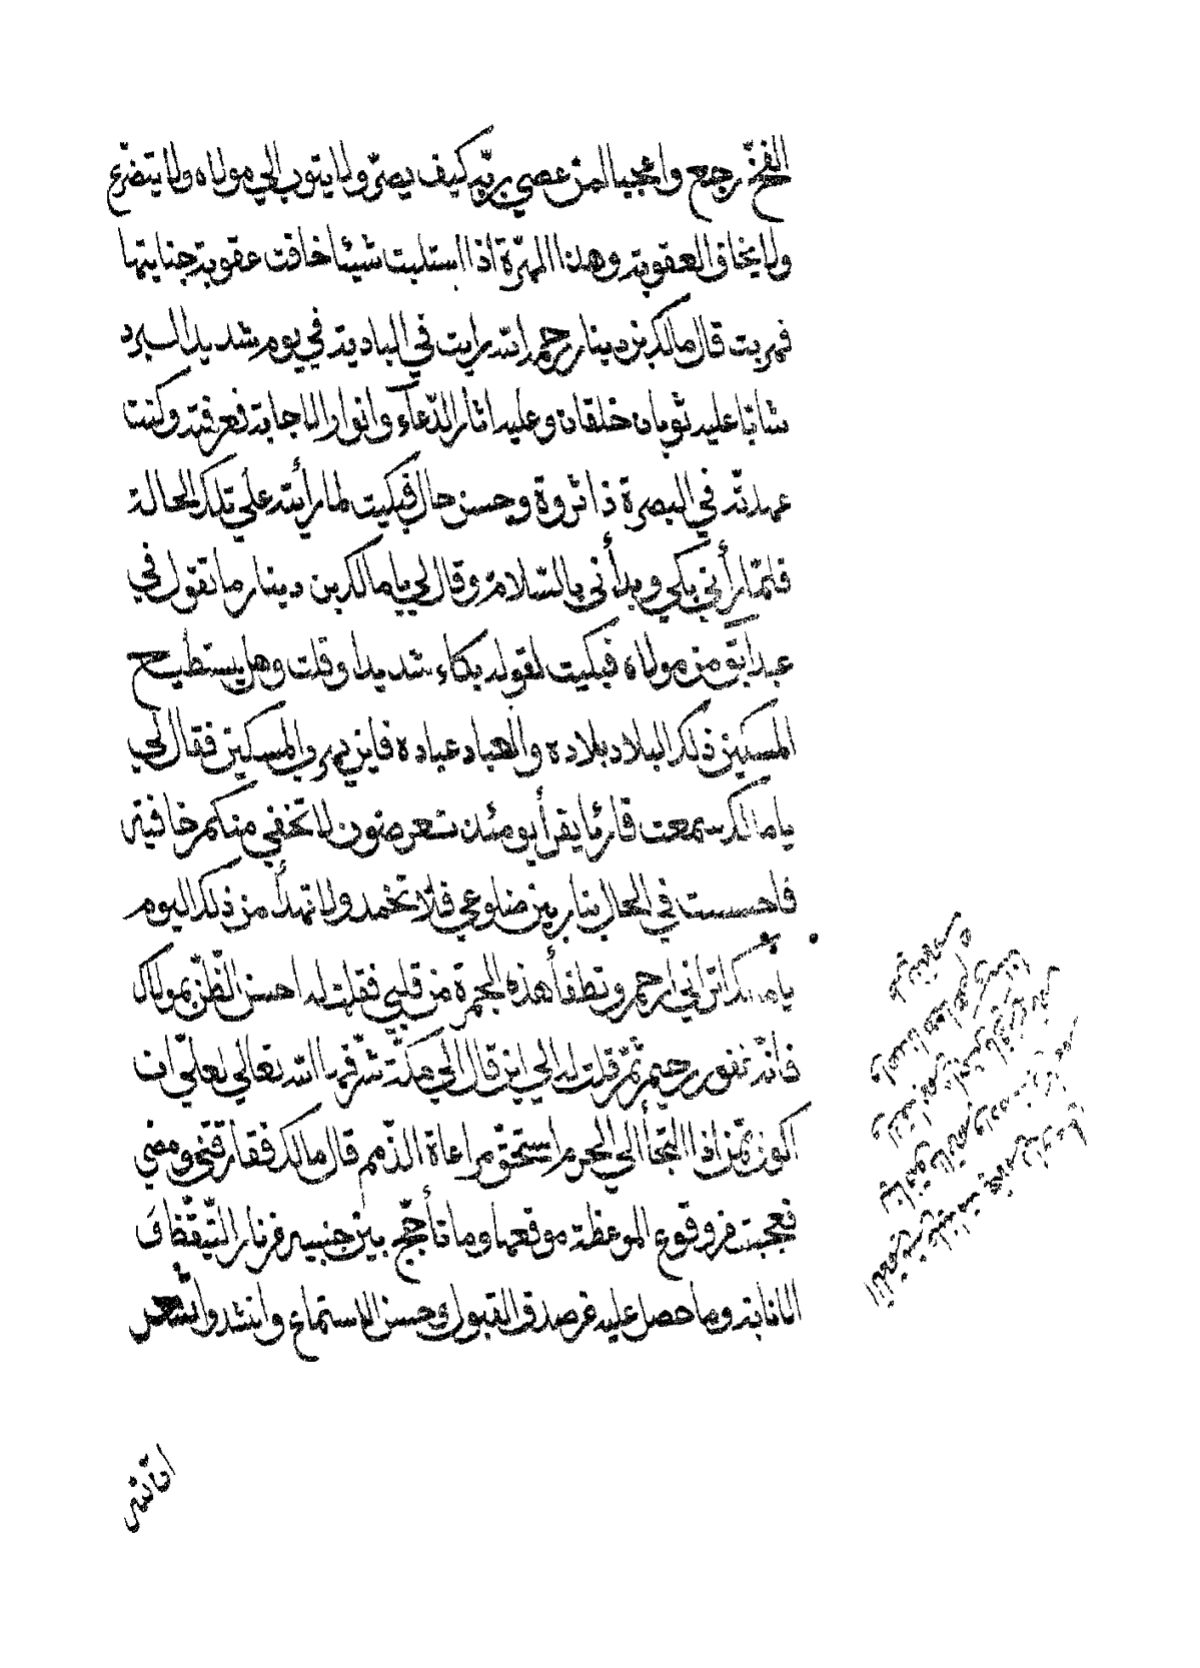 الفخّ رجع واعجبا لمن عصى بربّه كيف يصرّ ولا يتوب الي مولاه ولا يتضرّع
ولا يخاف العقوبة وهذا الهرّة اذا استلبت شيئا خافت عقوبة جنايتها
فهربت قال مالك بن دينار رحمه الله رايت في البادية في يوم شديد البرد
شابّا عليه ثوبان خلقان وعليه اثار الدّعآء وانوار الاجابة فعرفته وكنت
عهدته في البصرة ذا ثروة وحسن حال فبكيت لما رأيته علي تلك الحالة
فلمّا رأني بكي وبدأني بالسّلام وقال لي يا مالك بن دينار ما تقول في
عبد ابق من مولاه فبكيت لقوله بكاء شديدا وقلت وهل يستطيع
المسكين ذلك البلاد بلاده والعباد عباده فاين يهرب المسكين فقال لي
يا مالك سمعت قارئا يقرأ يومئذ تعرضون لا تخفي منكم خافية
فاحسست في الحال بنار بين ضلوعي فلا تخمد ولا تهدأ من ذلك اليوم
يا مالك اتراني ارحم وتطفأ هذه الجمرة من قلبي فقلت له احسن الظّنّ بمولاك
فانّه غفور رحيم ثمّ قلت له الي اين قال الي مكّة شرّفها الله تعالي لعلي ان
اكون ممّن اذا التجأ الي الحرم استحقّ مراعاة الذّمم قال مالك ففارقني ومضي
فعجبت من وقوع الموعظة موقعها وما تأجّج بين جنبيه من نار التّيقّظ و
الانابة وما حصل عليه من صدق القبول وحسن الاستماع وانشدوا شعر